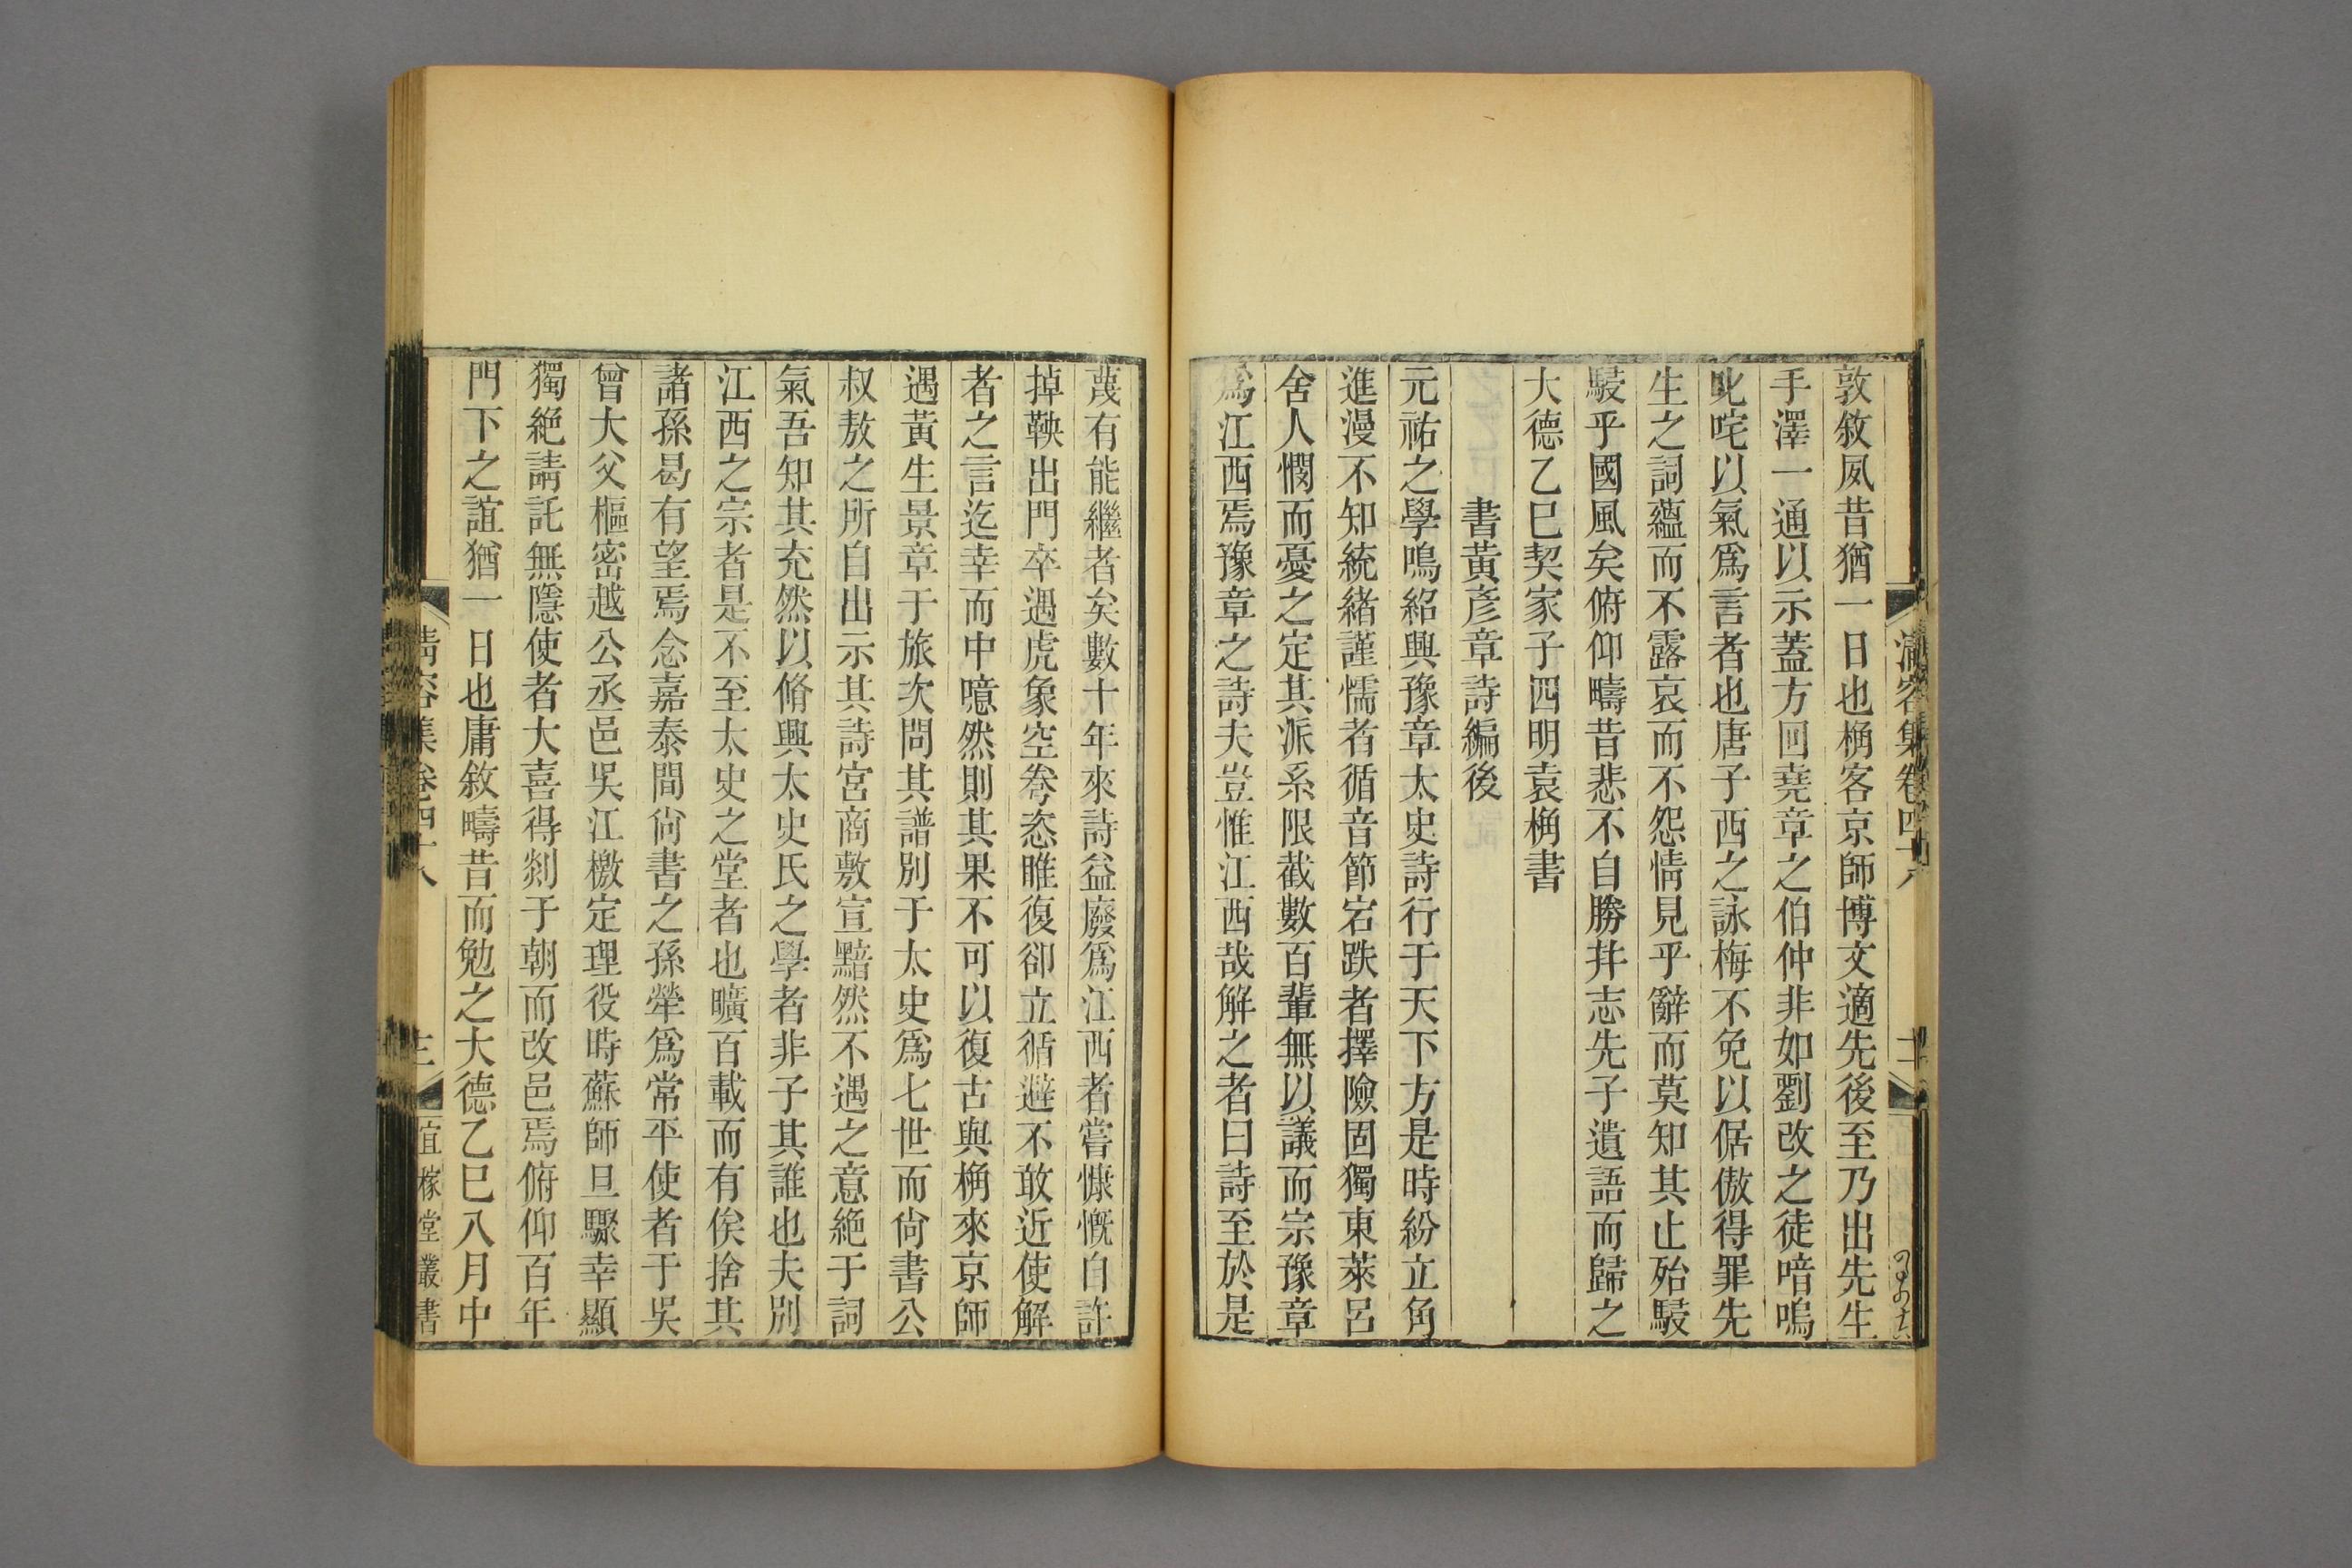 清容集卷四十八
敦敘夙昔猶一日也桷客京師博文適先後至乃出先生
手澤一通以示蓋方回堯章之伯仲非如劉改之徒喑嗚
叱咤以氣爲言者也唐子西之詠梅不免以倨傲得罪先
生之詞蘊而不露哀而不怨情見乎辭而莫知其止殆駸
駸乎國風矣俯仰疇昔悲不自勝幷志先子遺語而歸之
大德乙巳契家子四明袁桷書
書黃彥章詩編後
元祐之學鳴紹興豫章太史詩行于天下方是時紛立角
進漫不知統緒謹懦者循音節宕跌者擇險固獨東萊呂
舍人憫而憂之定其派系限截數百輩無以議而宗豫章
爲江西焉豫章之詩夫豈惟江西哉解之者曰詩至於是
蔑有能繼者矣數十年來詩益廢爲江西者嘗慷慨自許
掉鞅出門卒遇虎象空弮恣睢復卻立循避不敢近使解
者之言迄幸而中噫然則其果不可以復古與桷來京師
遇黃生景章于旅次問其譜別于太史爲七世而尙書公
叔敖之所自出示其詩宮商敷宣黯然不遇之意絕于詞
氣吾知其充然以脩興太史氏之學者非子其誰也夫別
江西之宗者是不至太史之堂者也曠百載而有俟捨其
諸孫曷有望焉念嘉泰間尙書之孫犖爲常平使者于吳
曾大父樞密越公丞邑吳江檄定理役時蘇師旦驟幸顯
獨絕請託無隱使者大喜得剡于朝而改邑焉俯仰百年
門下之誼猶一日也庸敘疇昔而勉之大德乙巳八月中
清容集卷四十八
三
宜稼堂叢書